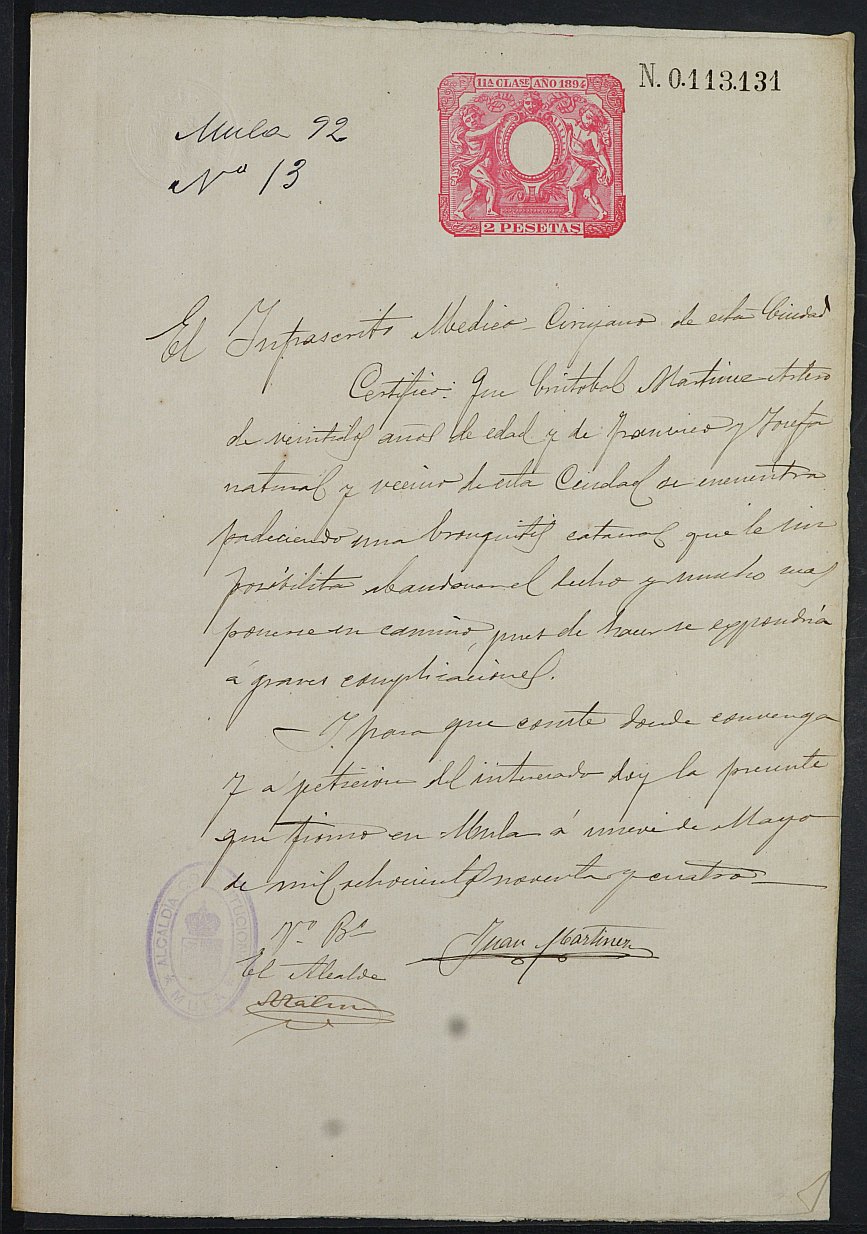 11ª CLASE AÑO 1894
N. 0.113.131
2 PESETAS
Mula 92
Nº 13
El Infrascrito Medico-Cirujano de esta Ciudad
Certifico: Que Cristobal Martinez Artero
de veintidos años de edad y de Francisco y Josefa
natural y vecino de esta Ciudad se encuentra
padeciendo una bronquitis catarral que le im
posibilita abandonar el lecho y mucho mas
ponerse en camino, pues de hacerse expondria
á graves complicaciones.
Y para que conste donde convenga
y a peticion del interesado doy la presente
que firmo en Mula á nueve de Mayo
de mil ochocientos noventa y cuatro
Vº Bº
Juan Martinez
El Alcalde
ALCALDIA CONSTITUCIONAL
MULA